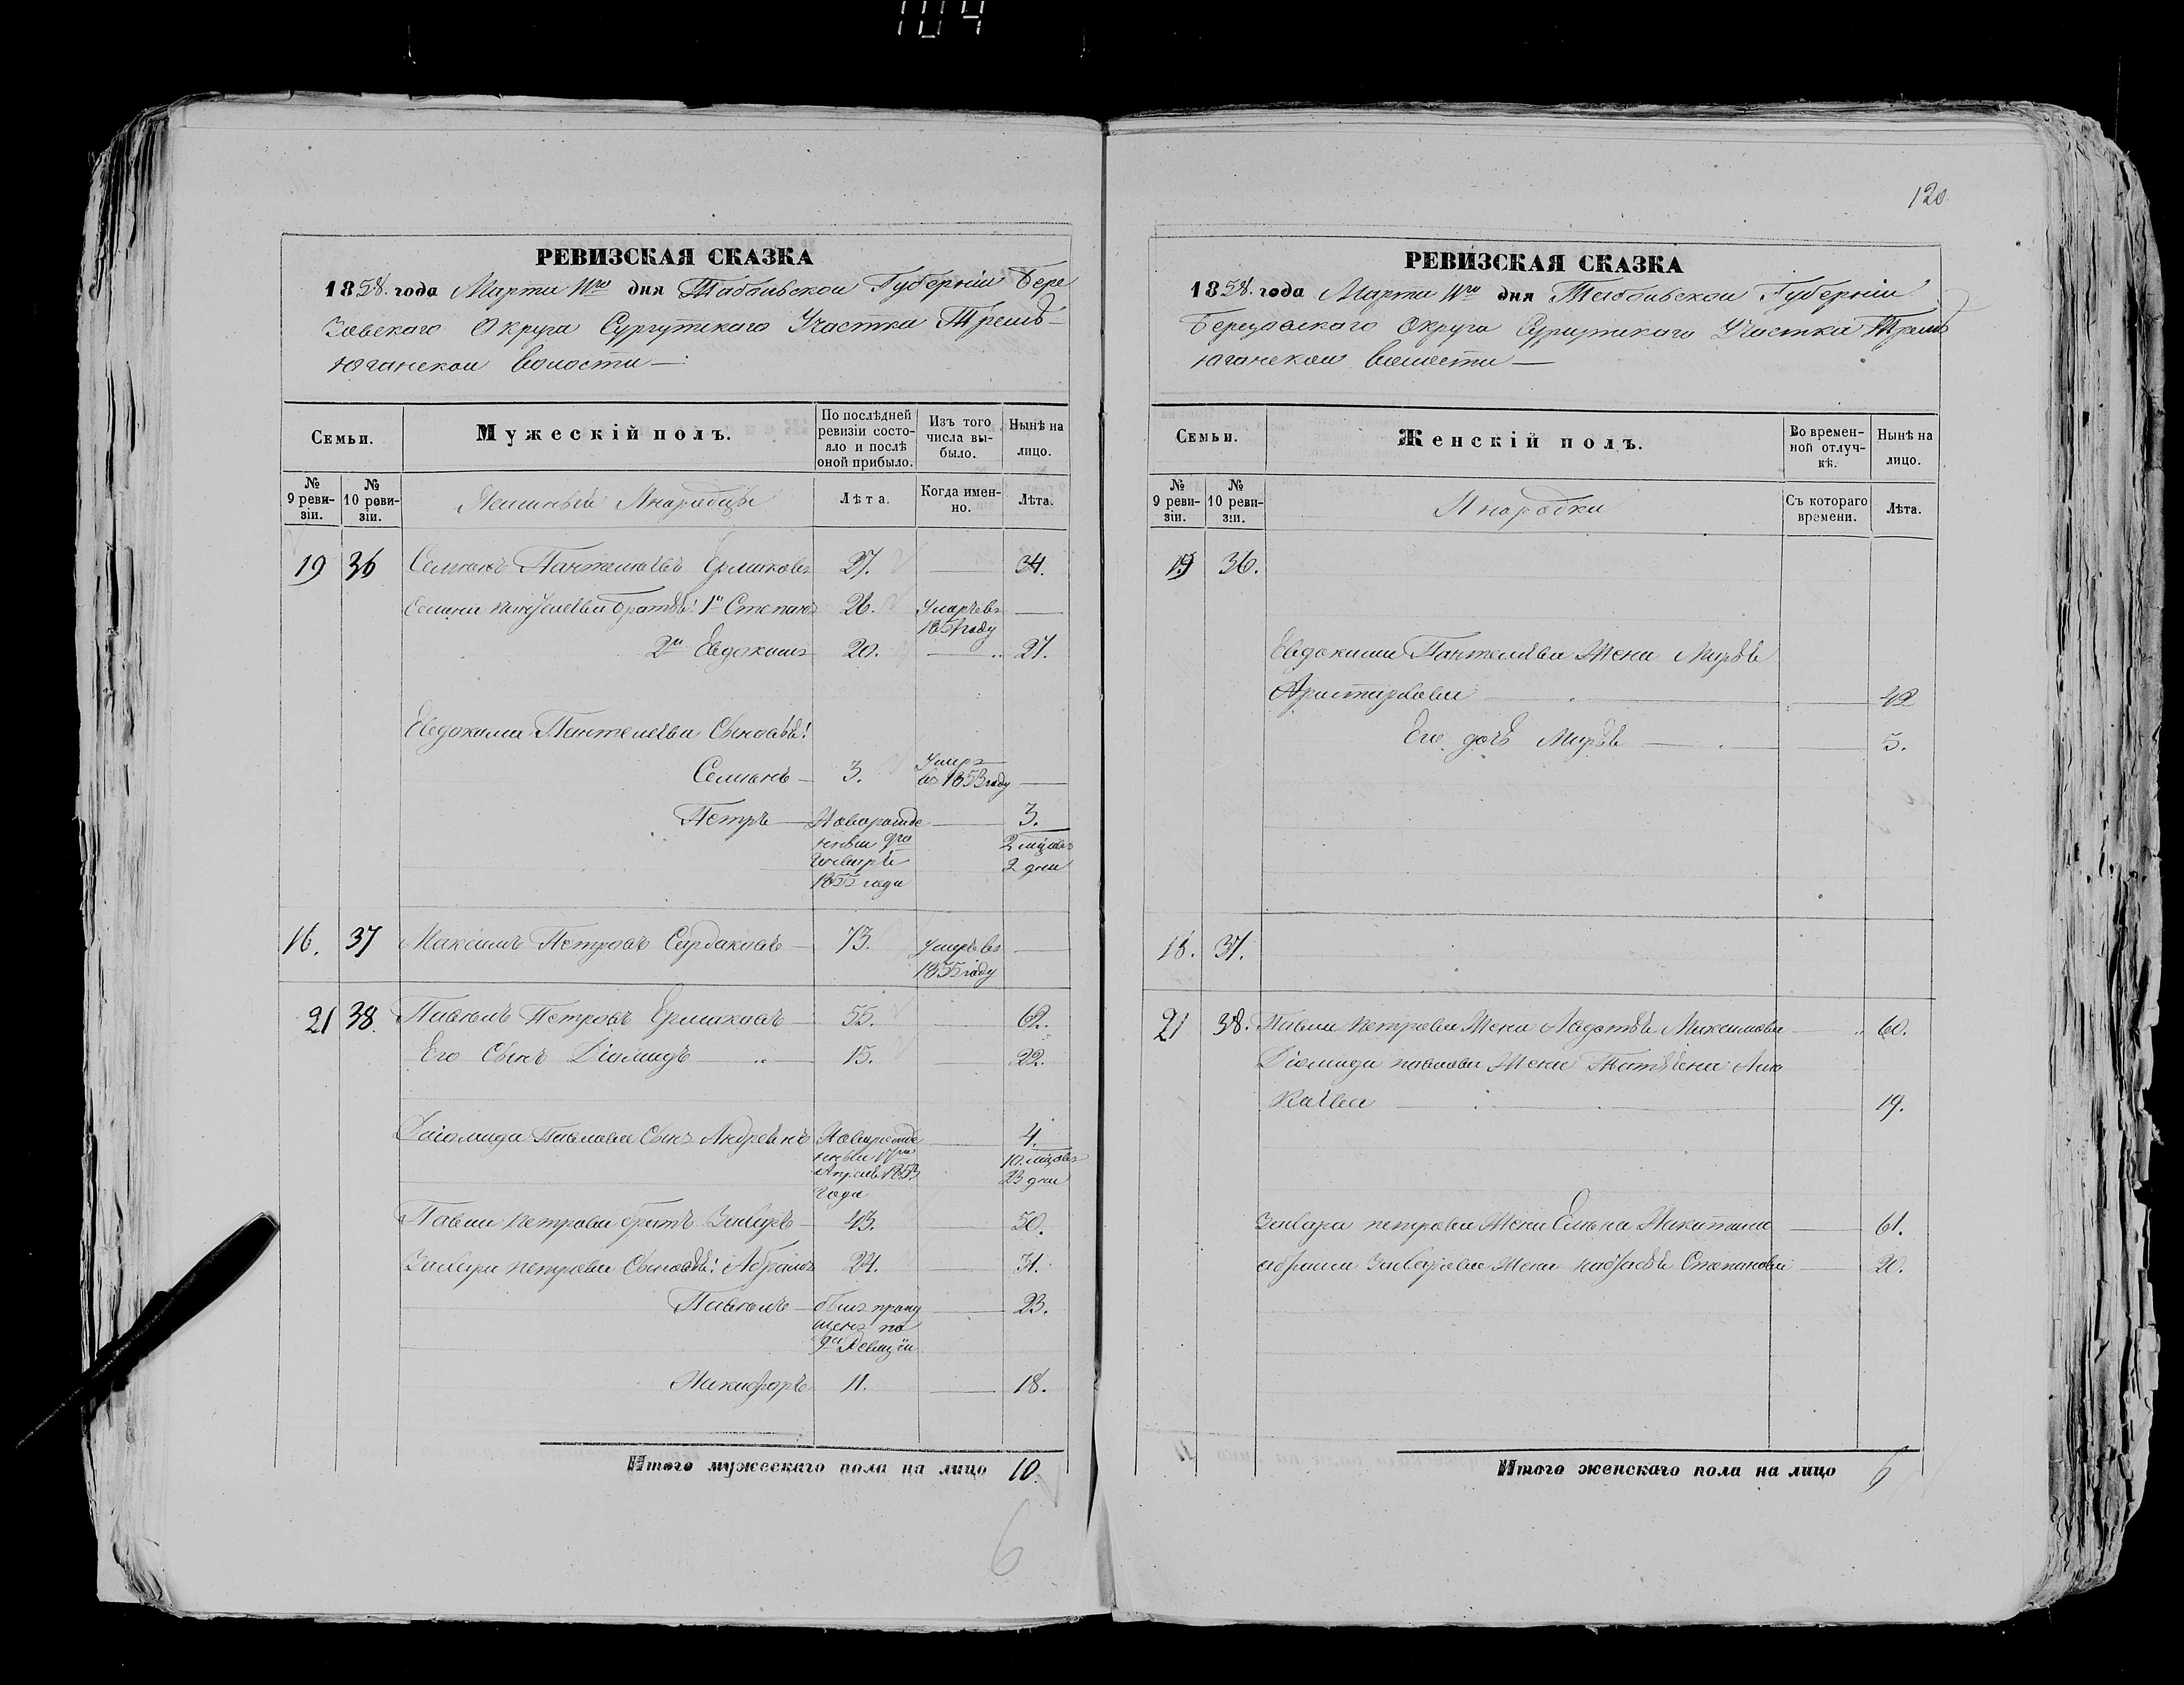 104
РЕВИЗСКАЯ СКАЗКА
1858. года Марта 11го дня Тобольской Губерніи Бере
зовскаго Округа Сургутскаго Участка Тремъ-
юганской волости —
Семьи.
Мужескій полъ.
По послѣдней ревизіи состояло и послѣ оной прибыло.
Изъ того числа выбыло.
Нынѣ на лицо.
№ 9 ревизіи.
№ 10 ревизіи.
Инородцы
Лѣта.
Когда именно.
Лѣта.
19 36 Семенъ Пантелеевъ Ермаковъ 27. — 34.
Семена Пантелеева братья: 1й Степанъ 26. Умеръ въ —
1851 году
2й Евдокимъ 20. — 27.
Евдокима Пантелеева Сыновья:
Семенъ — 3. Умеръ
въ 1853 году —
Петръ — Новорожде — 3.
нный 9го 2 мѣсяцъ
Генваря 2 дня
1855 года
16. 37 Максимъ Петровъ Сардаковъ — 73. Умеръ въ —
1855 году
21 38. Павелъ Петровъ Ермаковъ — 55. — 62.
Его Сынъ Діомидъ — 15. — 22.
Діомида Павлова Сынъ Андреянъ Новорожде — 4.
нный 17го 10 мѣсяцовъ
Апреля 1853 23 дня
года
Павла Петрова братъ Захаръ — 43. — 50.
Захара Петрова Сыновья: Абрамъ 24. — 31.
Павелъ — былъ пропу — 23.
щенъ по
9й Ревизіи
Никифоръ 11. — 18.
Итого мужескаго пола на лицо 10.
6
120
РЕВИЗСКАЯ СКАЗКА
1858. года Марта 11го дня Тобольской Губерніи
Березовскаго Округа Сургутскаго Участка Тремъ
юганской волости —
Семьи.
Женскій полъ.
Во временной отлучкѣ.
Нынѣ на лицо.
№ 9 ревизіи.
№ 10 ревизіи.
Инородки
Съ котораго времени.
Лѣта.
19 36.
Евдокима Пантелеева Жена Марья
Аристархова — 42
Его дочь Марья — 5.
18. 37.
21 38. Павла Петрова Жена Авдотья Максимова — 60.
Діомида Павлова Жена Татьяна
— 19.
Захара Петрова Жена Елена Никитина — 61.
Абрама Захарова Жена Настасья Степанова — 20.
Итого женскаго пола на лицо 6